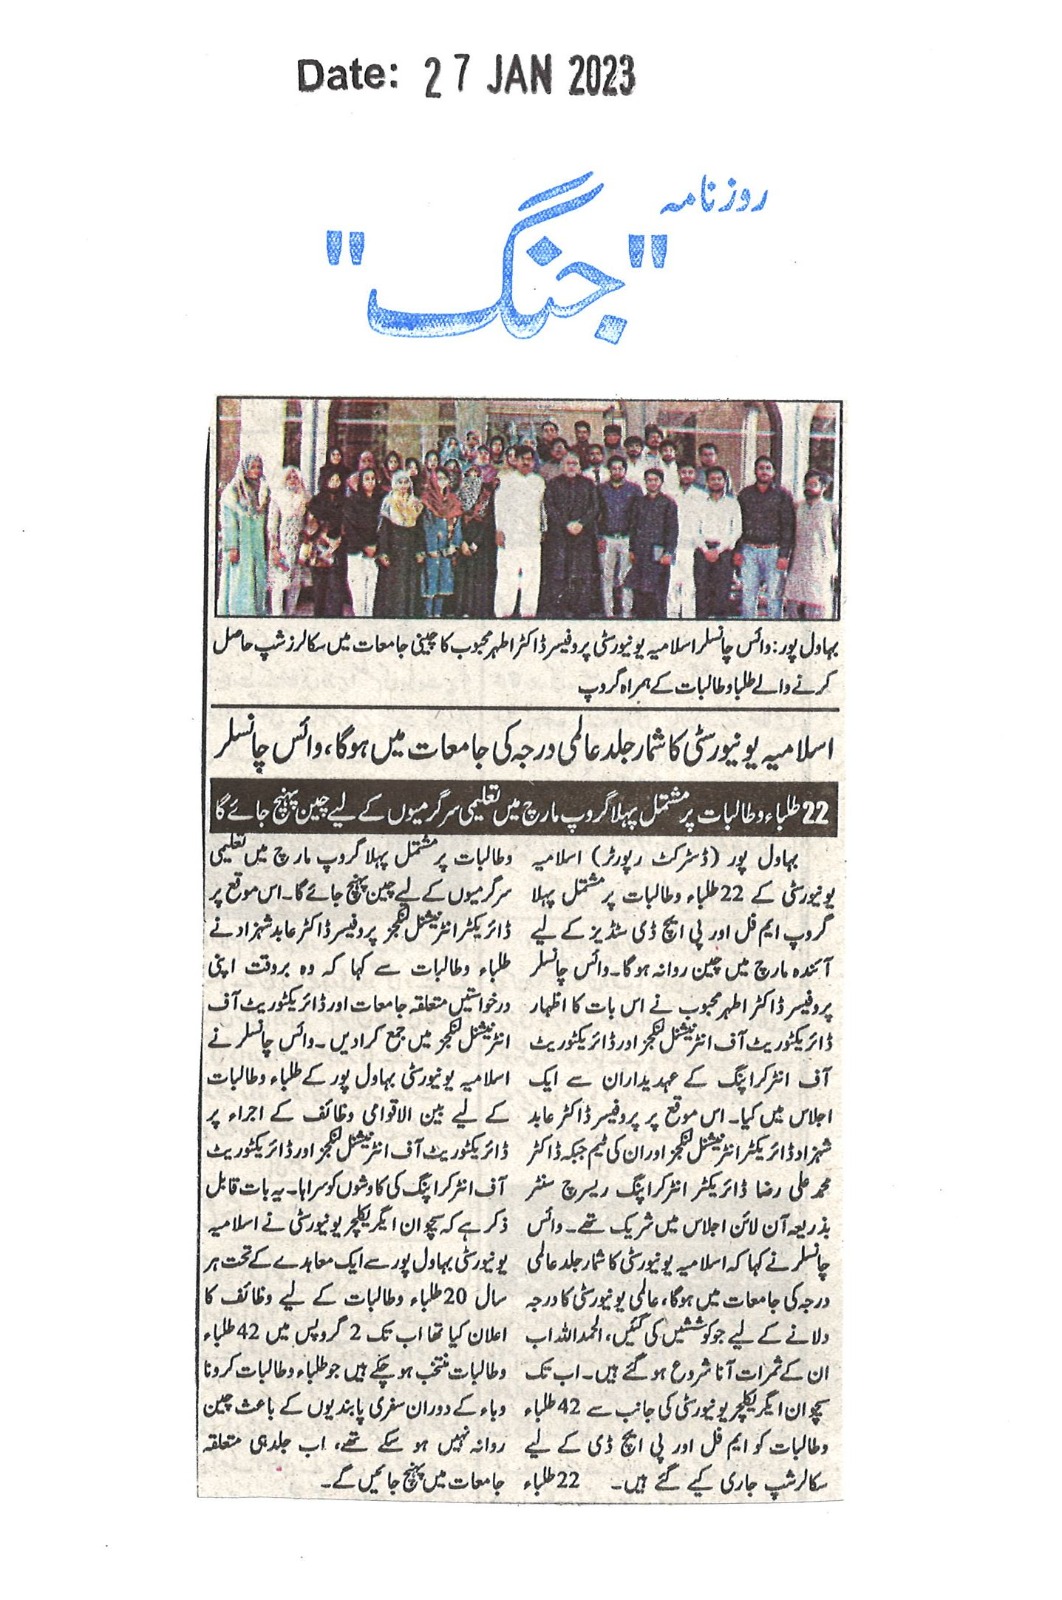 Date: 27 JAN 2023
روزنامہ
"جنگ"
بہاول پور: وائس چانسلر اسلامیہ یونیورسٹی پروفیسر ڈاکٹر اطہر محبوب کا چینی جامعات میں سکالرز شپ حاصل
کرنے والے طلبا و طالبات کے ہمراہ گروپ
اسلامیہ یونیورسٹی کا شمار جلد عالمی درجہ کی جامعات میں ہوگا، وائس چانسلر
22 طلباء و طالبات پر مشتمل پہلا گروپ مارچ میں تعلیمی سرگرمیوں کے لیے چین پہنچ جائے گا
بہاول پور (ڈسٹرکٹ رپورٹر) اسلامیہ
یونیورسٹی کے 22 طلباء وطالبات پر مشتمل پہلا
گروپ ایم فل اور پی ایچ ڈی سٹڈیز کے لیے
آئندہ مارچ میں چین روانہ ہوگا۔ وائس چانسلر
پروفیسر ڈاکٹر اطہر محبوب نے اس بات کا اظہار
ڈائریکٹوریٹ آف انٹرنیشنل لنکجز اور ڈائریکٹوریٹ
آف انٹرکراپنگ کے عہدیداران سے ایک
اجلاس میں کیا۔ اس موقع پر پروفیسر ڈاکٹر عابد
شہزاد ڈائریکٹر انٹرنیشنل لنکجز اور ان کی ٹیم جبکہ ڈاکٹر
محمد علی رضا ڈائریکٹر انٹرکراپنگ ریسرچ سنٹر
بذریعہ آن لائن اجلاس میں شریک تھے۔ وائس
چانسلر نے کہا کہ اسلامیہ یونیورسٹی کا شمار جلد عالمی
درجہ کی جامعات میں ہوگا، عالمی یونیورسٹی کا درجہ
دلانے کے لیے جو کوششیں کی گئیں، الحمد اللہ اب
ان کے ثمرات آنا شروع ہو گئے ہیں۔ اب تک
سیچوان ایگریکلچر یونیورسٹی کی جانب سے 42 طلباء
وطالبات کو ایم فل اور پی ایچ ڈی کے لیے
سکالرشپ جاری کیے گئے ہیں۔ 22 طلباء
وطالبات پر مشتمل پہلا گروپ مارچ میں تعلیمی
سرگرمیوں کے لیے چین پہنچ جائے گا۔ اس موقع پر
ڈائریکٹر انٹرنیشنل لنکجز پروفیسر ڈاکٹر عابد شہزاد نے
طلباء وطالبات سے کہا کہ وہ بروقت اپنی
درخواستیں متعلقہ جامعات اور ڈائریکٹوریٹ آف
انٹرنیشنل لنکجز میں جمع کرا دیں۔ وائس چانسلر نے
اسلامیہ یونیورسٹی بہاول پور کے طلباء وطالبات
کے لیے بین الاقوامی وظائف کے اجراء پر
ڈائریکٹوریٹ آف انٹرنیشنل لنکجز اور ڈائریکٹوریٹ
آف انٹرکراپنگ کی کاوشوں کو سراہا۔ یہ بات قابل
ذکر ہے کہ سیچوان ایگریکلچر یونیورسٹی نے اسلامیہ
یونیورسٹی بہاول پور سے ایک معاہدے کے تحت ہر
سال 20 طلباء وطالبات کے لیے وظائف کا
اعلان کیا تھا اب تک 2 گروپس میں 42 طلباء
وطالبات منتخب ہو چکے ہیں جو طلباء وطالبات کرونا
وباء کے دوران سفری پابندیوں کے باعث چین
روانہ نہیں ہو سکے تھے، اب جلد ہی متعلقہ
جامعات میں پہنچ جائیں گے۔